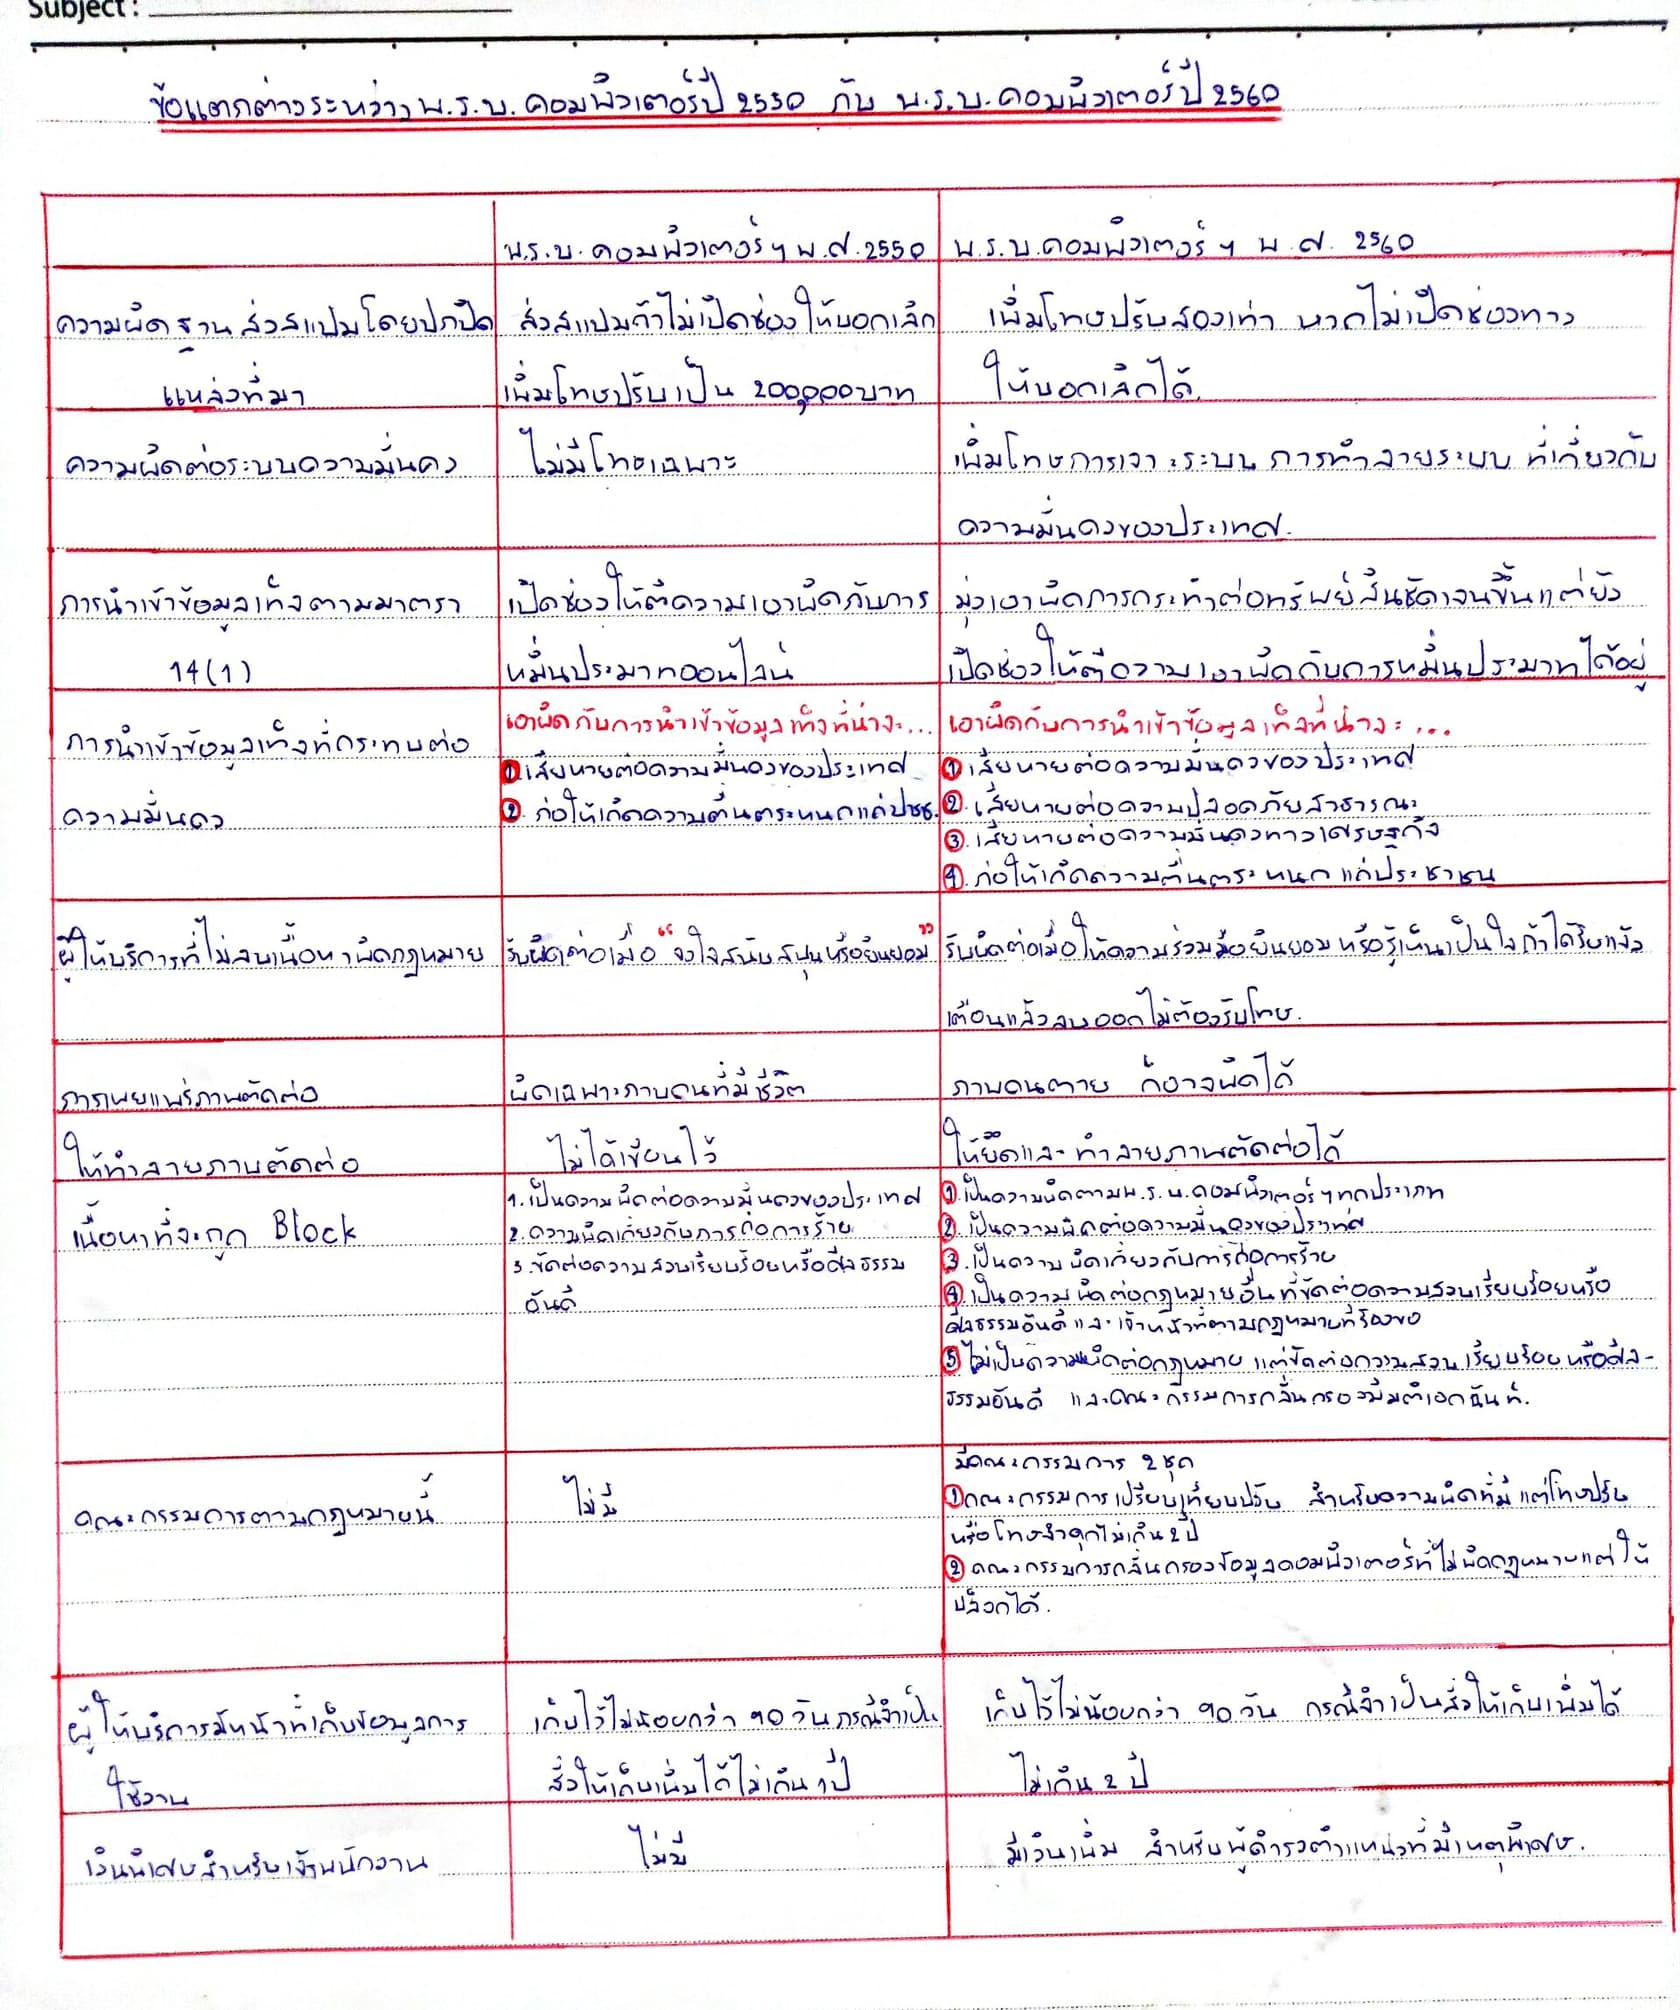 Subject :
ข้อแตกต่างระหว่าง พ.ร.บ. คอมพิวเตอร์ปี 2550 กับ พ.ร.บ. คอมพิวเตอร์ปี 2560
พ.ร.บ. คอมพิวเตอร์ ฯ พ.ศ. 2550
พ.ร.บ. คอมพิวเตอร์ ฯ พ.ศ. 2560
ความผิดฐานส่งสแปมโดยปกปิด
แหล่งที่มา
ส่งสแปมถ้าไม่เปิดช่องให้บอกเลิก
เพิ่มโทษปรับเป็น 200,000 บาท
เพิ่มโทษปรับสองเท่า หากไม่เปิดช่องทาง
ให้บอกเลิกได้.
ความผิดต่อระบบความมั่นคง
ไม่มีโทษเฉพาะ
เพิ่มโทษการเจาะระบบ การทำลายระบบ ที่เกี่ยวกับ
ความมั่นคงของประเทศ.
การนำเข้าข้อมูลเท็จตามมาตรา
14(1)
เปิดช่องให้ตีความเอาผิดกับการ
หมิ่นประมาทออนไลน์
มุ่งเอาผิดการกระทำต่อทรัพย์สินชัดเจนขึ้นแต่ยัง
เปิดช่องให้ตีความเอาผิดกับการหมิ่นประมาทได้อยู่
การนำเข้าข้อมูลเท็จที่กระทบต่อ
ความมั่นคง
เอาผิดกับการนำเข้าข้อมูลเท็จที่น่าจะ...
1. เสียหายต่อความมั่นคงของประเทศ
2. ก่อให้เกิดความตื่นตระหนกแก่ปชช.
เอาผิดกับการนำเข้าข้อมูลเท็จที่น่าจะ...
1. เสียหายต่อความมั่นคงของประเทศ
2. เสียหายต่อความปลอดภัยสาธารณะ
3. เสียหายต่อความมั่นคงทางเศรษฐกิจ
4. ก่อให้เกิดความตื่นตระหนกแก่ประชาชน
ผู้ให้บริการที่ไม่ลบเนื้อหาผิดกฎหมาย
รับผิดต่อเมื่อ "จงใจสนับสนุนหรือยินยอม"
รับผิดต่อเมื่อให้ความร่วมมือยินยอมหรือรู้เห็นเป็นใจถ้าได้รับแจ้ง
เตือนแล้วลบออกไม่ต้องรับโทษ.
การเผยแพร่ภาพตัดต่อ
ผิดเฉพาะภาพคนที่มีชีวิต
ภาพคนตาย ก็อาจผิดได้
ให้ทำลายภาพตัดต่อ
ไม่ได้เขียนไว้
ให้ยึดและทำลายภาพตัดต่อได้
เนื้อหาที่จะถูก Block
1. เป็นความผิดต่อความมั่นคงของประเทศ
2. ความผิดเกี่ยวกับการก่อการร้าย
3. ขัดต่อความสงบเรียบร้อยหรือศีลธรรม
อันดี
1. เป็นความผิดตามพ.ร.บ.คอมพิวเตอร์ ฯ ทุกประเภท
2. เป็นความผิดต่อความมั่นคงของประเทศ
3. เป็นความผิดเกี่ยวกับการก่อการร้าย
4. เป็นความผิดต่อกฎหมายอื่นที่ขัดต่อความสงบเรียบร้อยหรือ
ศีลธรรมอันดีและเจ้าหน้าที่ตามกฎหมายที่ร้องขอ
5 ไม่เป็นความผิดต่อกฎหมาย แต่ขัดต่อความสงบเรียบร้อยหรือศีล-
ธรรมอันดี และคณะกรรมการกลั่นกรองมีมติเอกฉันท์.
คณะกรรมการตามกฎหมายนี้
ไม่มี
มีคณะกรรมการ 2 ชุด
1 คณะกรรมการเปรียบเทียบปรับ สำหรับความผิดที่มีแต่โทษปรับ
หรือโทษจำคุกไม่เกิน 2 ปี
2 คณะกรรมการกลั่นกรองข้อมูลคอมพิวเตอร์ที่ไม่ผิดกฎหมายแต่ให้
บล็อกได้.
ผู้ให้บริการมีหน้าที่เก็บข้อมูลการ
ใช้งาน
เก็บไว้ไม่น้อยกว่า 90 วันกรณีจำเป็น
สั่งให้เก็บเพิ่มได้ไม่เกิน 1 ปี
เก็บไว้ไม่น้อยกว่า 90 วัน กรณีจำเป็นสั่งให้เก็บเพิ่มได้
ไม่เกิน 2 ปี
เงินพิเศษสำหรับเจ้าพนักงาน
ไม่มี
มีเงินเพิ่ม สำหรับผู้ดำรงตำแหน่งที่มีเหตุพิเศษ.